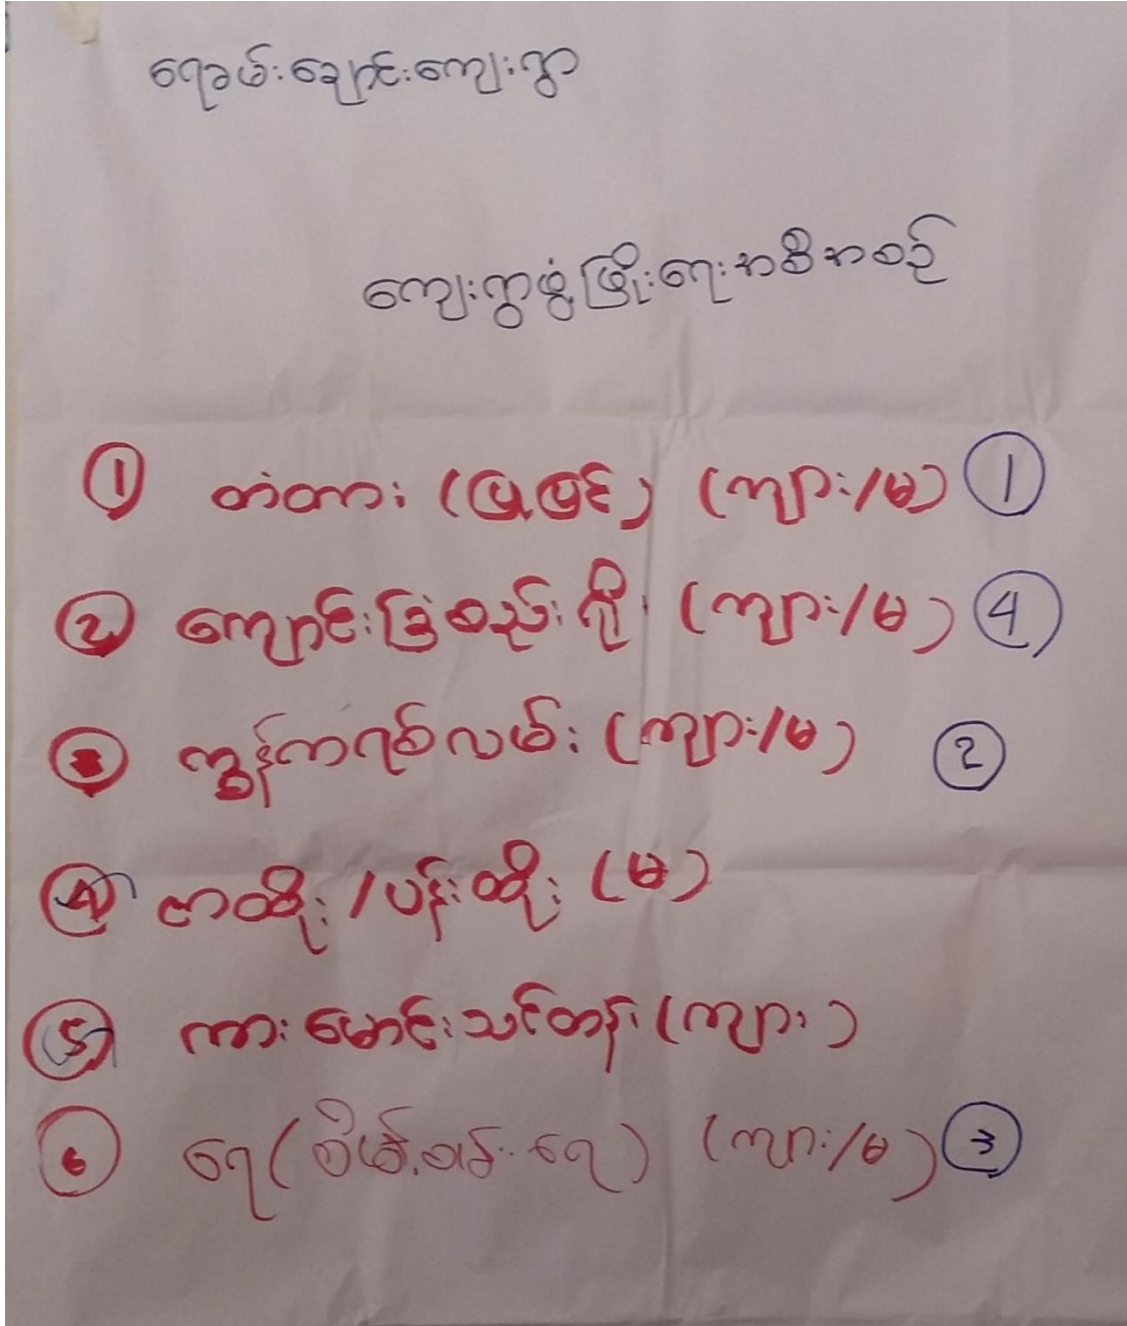 ရေခမ်းချောင်းကျေးရွာ
ကျေးရွာဖွံ့ဖြိုးရေးအစီအစဉ်
① တံတား (ပြုပြင်) (ကျား/မ) ①
② ကျောင်းခြံစည်းရိုး (ကျား/မ) ④
③ ကွန်ကရစ်လမ်း (ကျား/မ) ②
④ ဇာထိုး/ပန်းထိုး (မ)
⑤ ကားမောင်းသင်တန်း (ကျား)
⑥ ရေ (စိမ့်စမ်းရေ) (ကျား/မ) ③